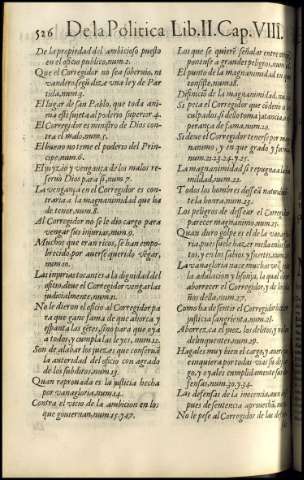 526 De la Politica Lib.II.Cap.VIII.
De la propiedad del ambicioso puesto
en el oficio publico, num.2.
Que el Corregidor no sea soberuio, ni
vandero segun dize vna ley de Par
tida, num.3.
El lugar de san Pablo, que toda ani
ma està sujeta al poderio superior 4.
El Corregidor es ministro de Dios con-
tra el malo, num.5.
El bueno no teme el poderio del Prin-
cipe, num.6.
El juyzio y vengança de los malos re-
seruò Dios para si, num.7.
La vengança en el Corregidor es con-
traria a la magnanimidad que ha
de tener, num.8.
Al Corregidor no se le dio cargo para
vengar sus injurias, num.9.
Muchos que eran ricos, se han empo-
brecido por auerse querido vēgar,
num.10.
Las injurias tocantes a la dignidad del
oficio, deue el Corregidor vengarlas
judicialmente, num.11.
No le dieron el oficio al Corregidor pa
ra que gane fama de que ahorca y
espanta las gētes, sino para que oya
a todos, y cumpla las leyes, num.12.
Son de alabar los juezes que conseruā
la autoridad del oficio con agrado
de los subditos, num.13.
Quan reprouada es la justicia hecha
por vanagloria, num.14.
Contra el vicio de la ambicion en los
que gouiernan, num.15.y 47.
Los que se quierē señalar entre
ponense a grandes peligros, num
El punto de la magnanimidad en que
consiste, num.18.
Difinicion de la magnanimidad, nu.
Si peca el Corregidor que
culpados, si dello toma jatancia, o es-
perança de fama, num.20.
Si deue el Corregidor tener
nimo, y en que grado y forma,
num.21.23.24.y 25.
La magnanimidad si repugna a la hu-
mildad, num.22.
Todos los hombres dessean natural-
te la honra, num.23.
Los peligros de dessear el Corregidor
parecer magnanimo, num.25.
Quan duro golpe es el de la vanaglo-
ria, pues suele hazer
tos, y en los sabios, y fuertes, num.
La vanagloria nace muchas vezes
la adulacion y lisonja, la qual deue
aborrecer el Corregidor, y de los da-
ños della, num.27.
Como ha de sentir el Corregidor hazer
justicia sangrienta, num.28.
Aborrezca el juez, los delitos, y no los
delinquentes, num.29.
Hagales muy bien el cargo, y aun por
enquanera por todas vias
go, y oyales cumplidamente sus de-
fensas, num.30.y 34.
Las defensas de la inocencia, aun des-
pues de sentencia
No le pese al Corregidor de las defen-